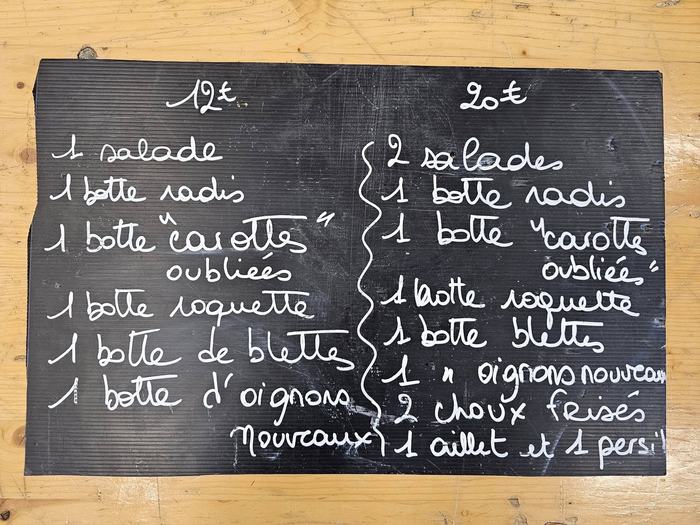 12€
1 salade
1 botte radis
1 botte "carottes"
oubliées
1 botte roquette
1 botte de blettes
1 botte d'oignons
nouveaux
20€
2 salades
1 botte radis
1 botte "carottes
oubliées"
1 botte roquette
1 botte blettes
1 " oignons nouveau
2 choux frisés
1 aillet et 1 persil